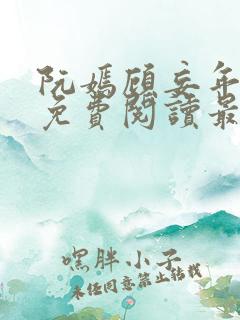 阮嫣顧妄年
免費閱讀最
嘿胖小子
未經同意禁止轉載